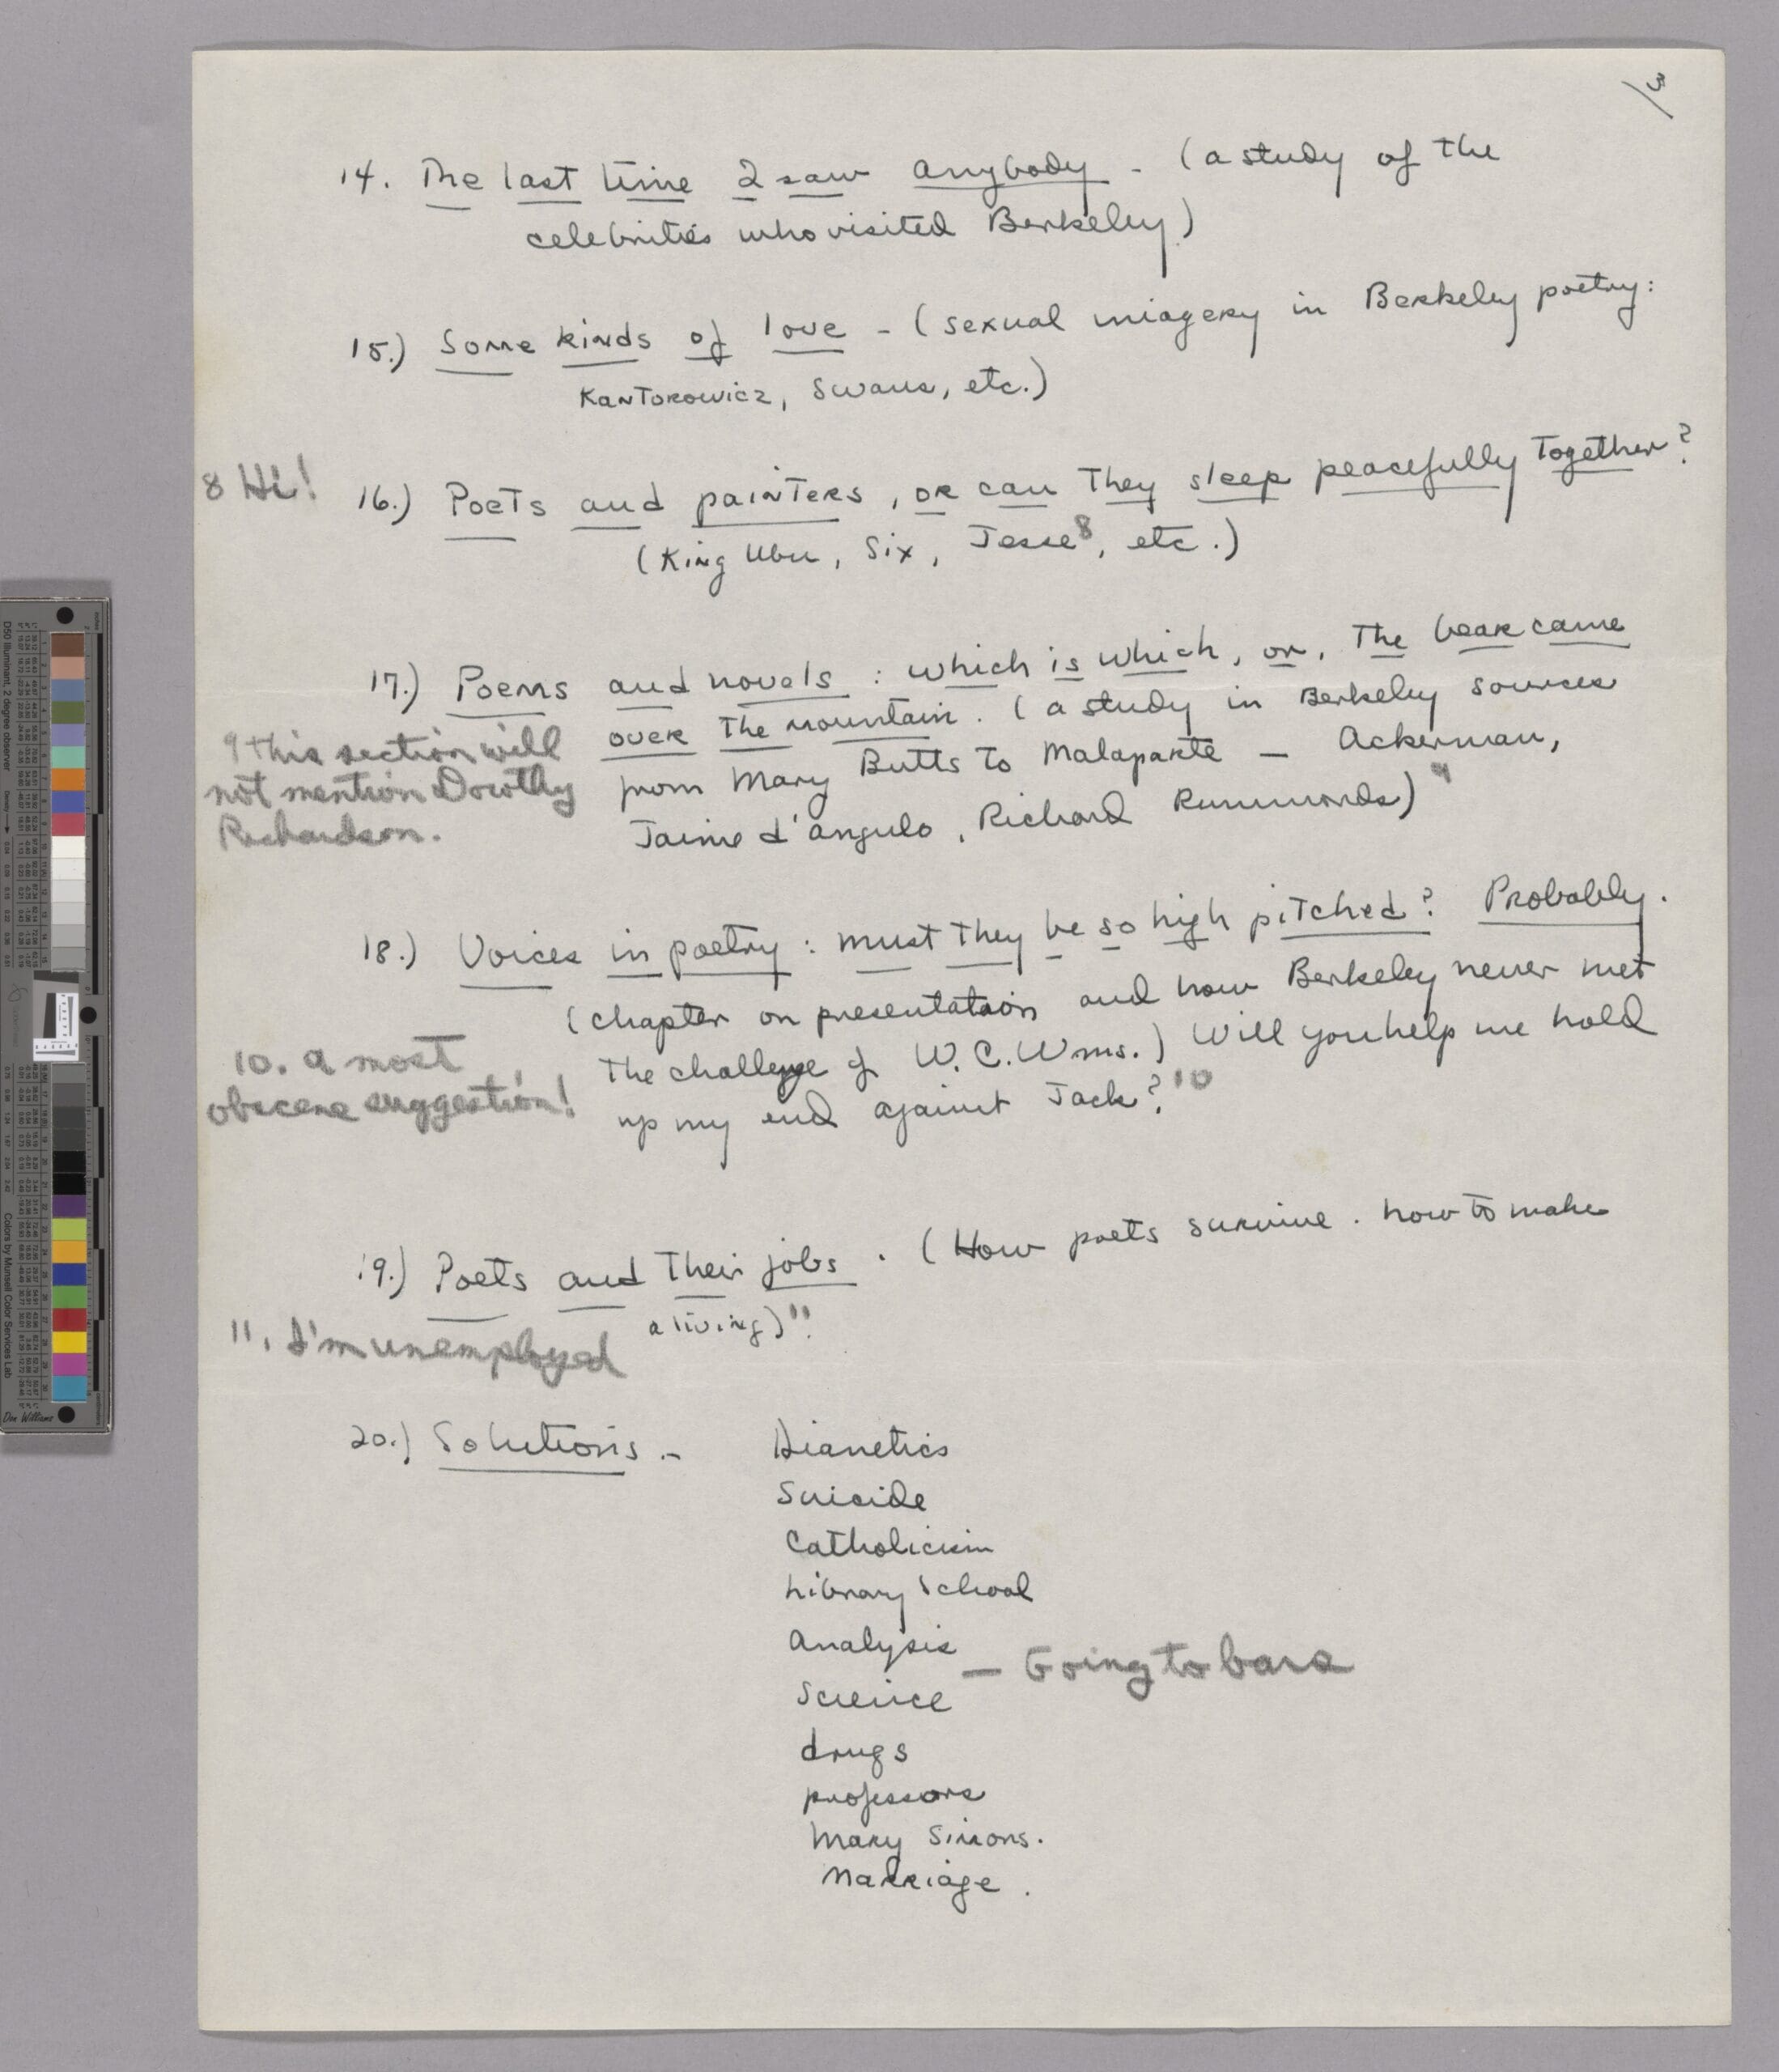 3
14. The last time I saw anybody - (a study of the
celebrities who visited Berkeley)
15.) Some kinds of love - (sexual imagery in Berkeley poetry:
Kantorowicz, Swans, etc.)
8 Hi!
16.) Poets and painters, or can they sleep peacefully together?
(King Ubu, Six, Jesse⁸, etc.)
17.) Poems and novels : which is which, or, The bear came
over the mountain. (a study in Berkeley sources
from Mary Butts to Malaparte — Ackerman,
Jaime d'angulo, Richard Rummonds)⁹
9 this section will
not mention Dorothy
Richardson.
18.) Voices in poetry : must they be so high pitched? Probably.
(chapter on presentation and how Berkeley never met
the challenge of W.C.Wms.) Will you help me hold
up my end against Jack?¹⁰
10. A most
obscene suggestion!
19.) Poets and their jobs. (How poets survive. how to make
a living)¹¹.
11. I'm unemployed
20.) Solutions. - Dianetics
Suicide
Catholicism
Library School
Analysis
— Going to bars
Science
drugs
professors
Mary Simons.
Marriage.
D50 Illuminant, 2 degree observer
Density
Colors by Munsell Color Services Lab
Don Williams